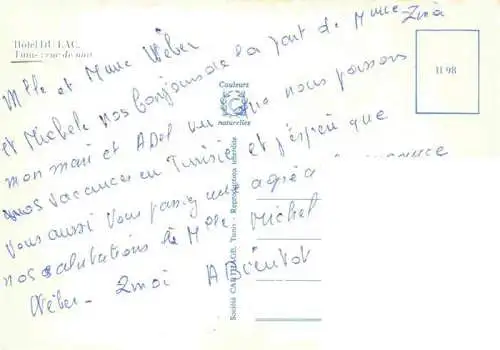 Hôtel DU LAC.
Tunis : vue de nuit
Mlle et Mme Weber
et Michele nos bonjours de la part de Mme
mon mari et Abel vu que nous passons
nos vacances en Tunisie et j'espère que
vous aussi vous passez une agréa
nos salutations à Mlle Michel
Wéber - A Bientôt
Couleurs
naturelles
Société CARTHAGE, Tunis - Reproductions interdites
H 98